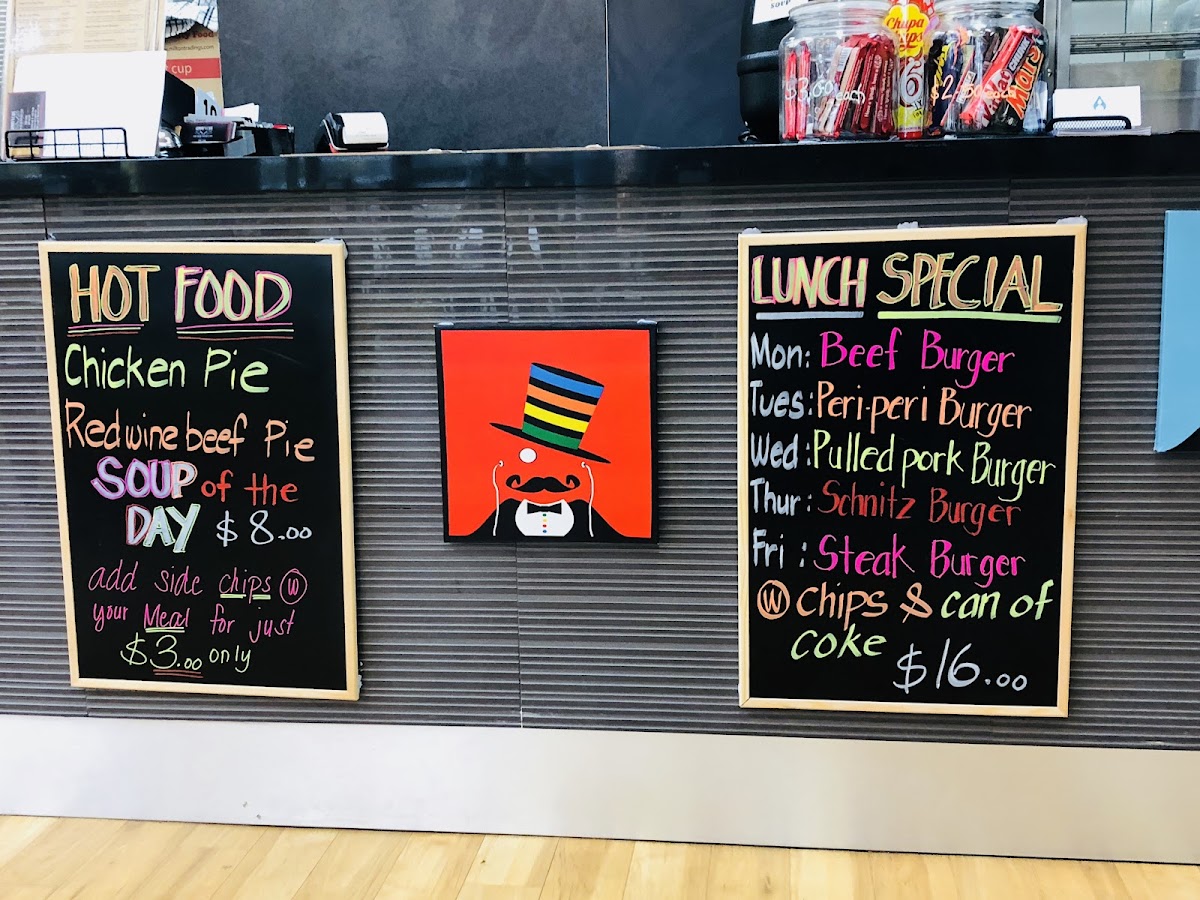 cup
Chupa
Chups
$2.
Mars
A
HOT FOOD
Chicken Pie
Red wine beef Pie
SOUP of the
DAY $8.00
add side chips W
your Meal for just
$3.00 only
LUNCH SPECIAL
Mon: Beef Burger
Tues: Peri-peri Burger
Wed: Pulled pork Burger
Thur: Schnitz Burger
Fri: Steak Burger
W chips & can of
coke
$16.00